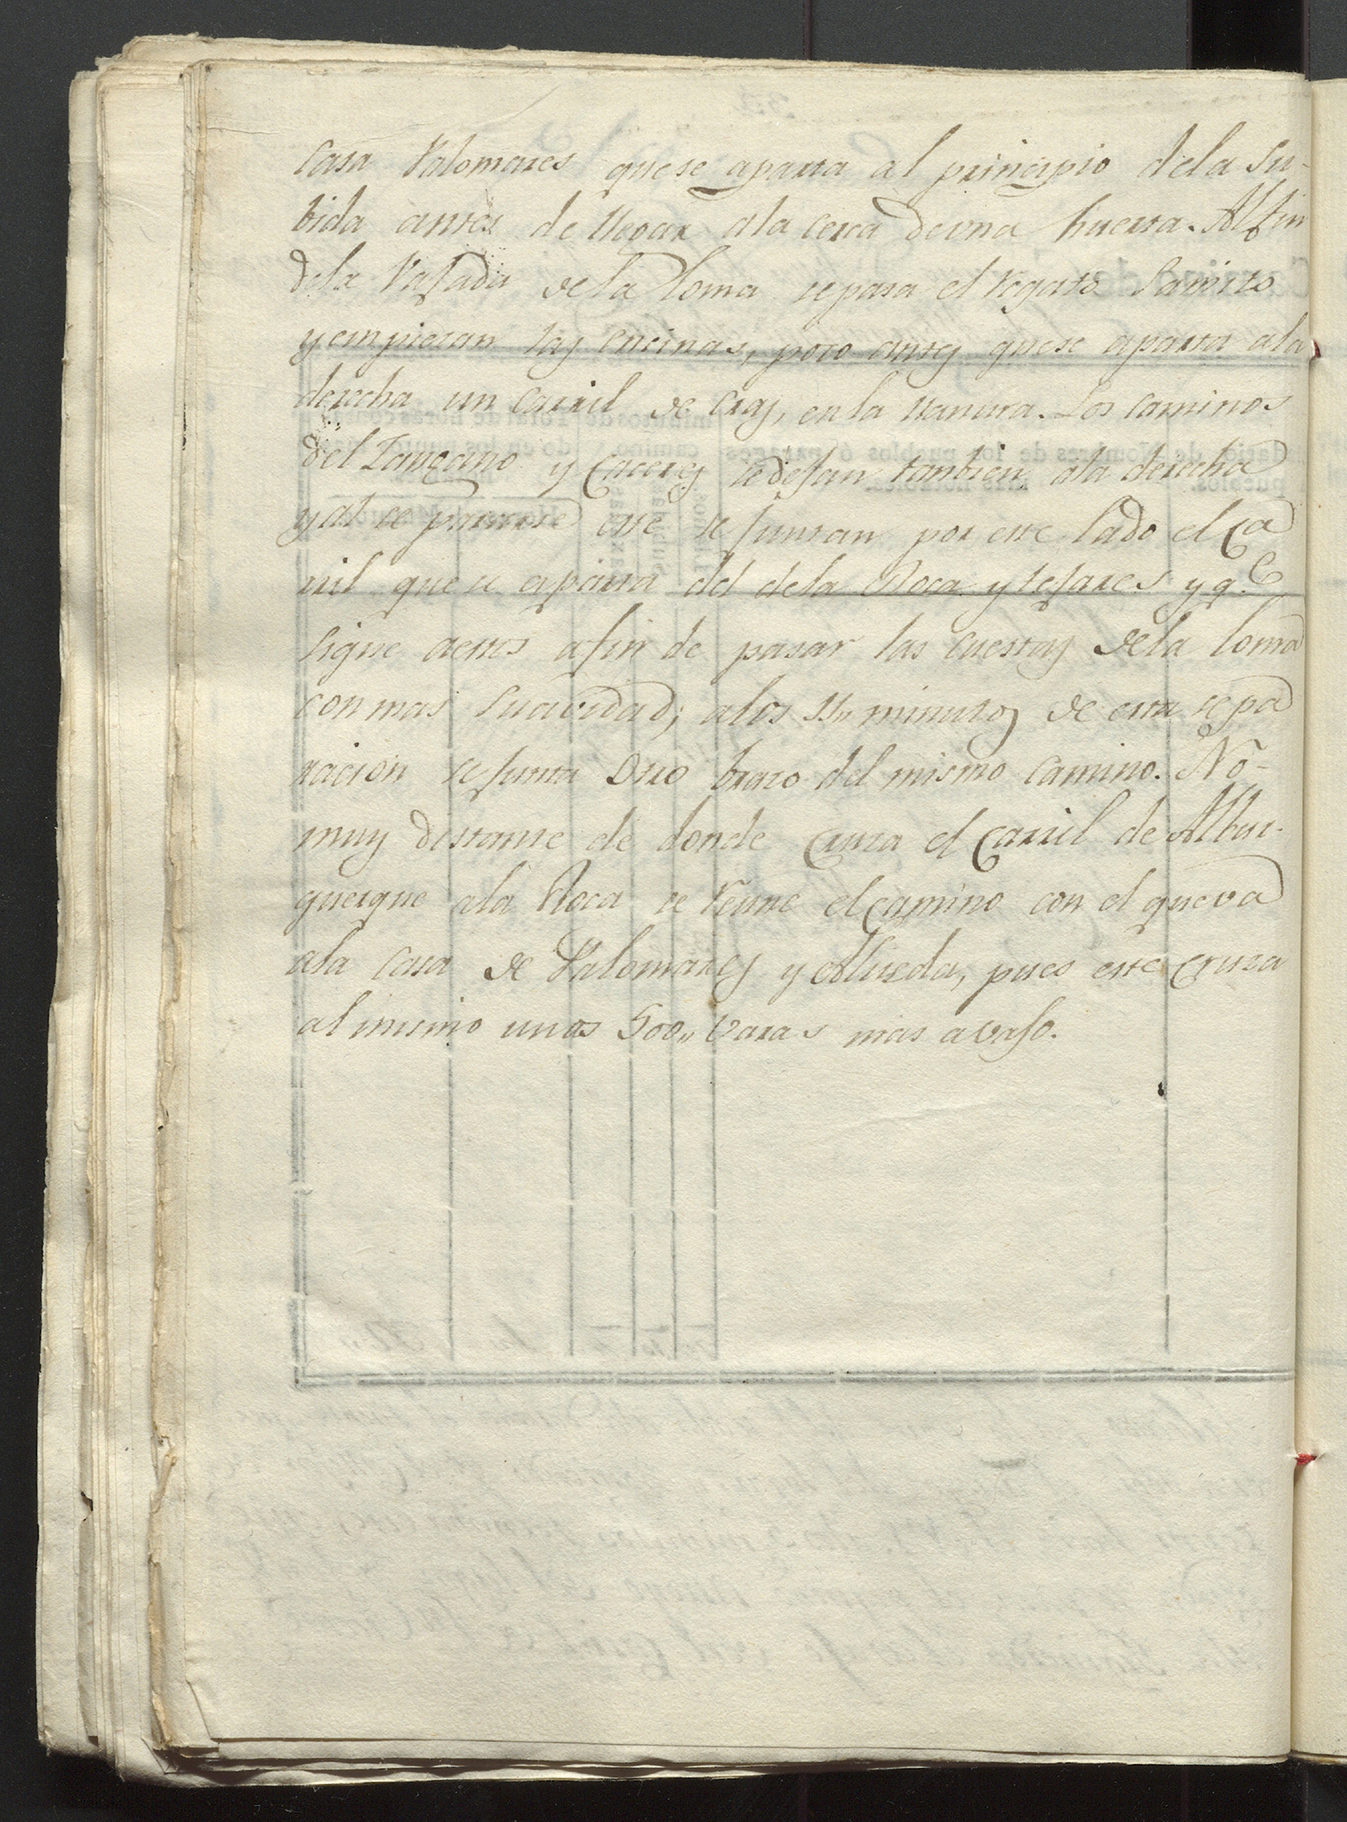 Casa Palomares que se aparta al principio de la Su-
bida antes de llegar ala cerca de una huerta. Al fin
dela Vajada dela loma se pasa el regato
y empiezan las encinas, poco antes que se aparta ala
derecha un Carril de eras, en la llanura. Los caminos
del Zangano y Caceres se dejan tambien ala derecha
y al se este se juntan por este lado el Ca
rril que se aparta del dela Roca y tejares y q.e
sigue aeste afin de pasar las Cuestas dela loma
con mas suavidad; alos 11,, minutos de esta sepa
racion se junta otro brazo del mismo Camino. No-
muy distante de donde Cruza el Carril de Albur-
querque ala Roca se reune el camino con el que va
ala Casa de Palomares y Aliseda, pues este cruza
al mismo unas 500,, varas mas avajo.